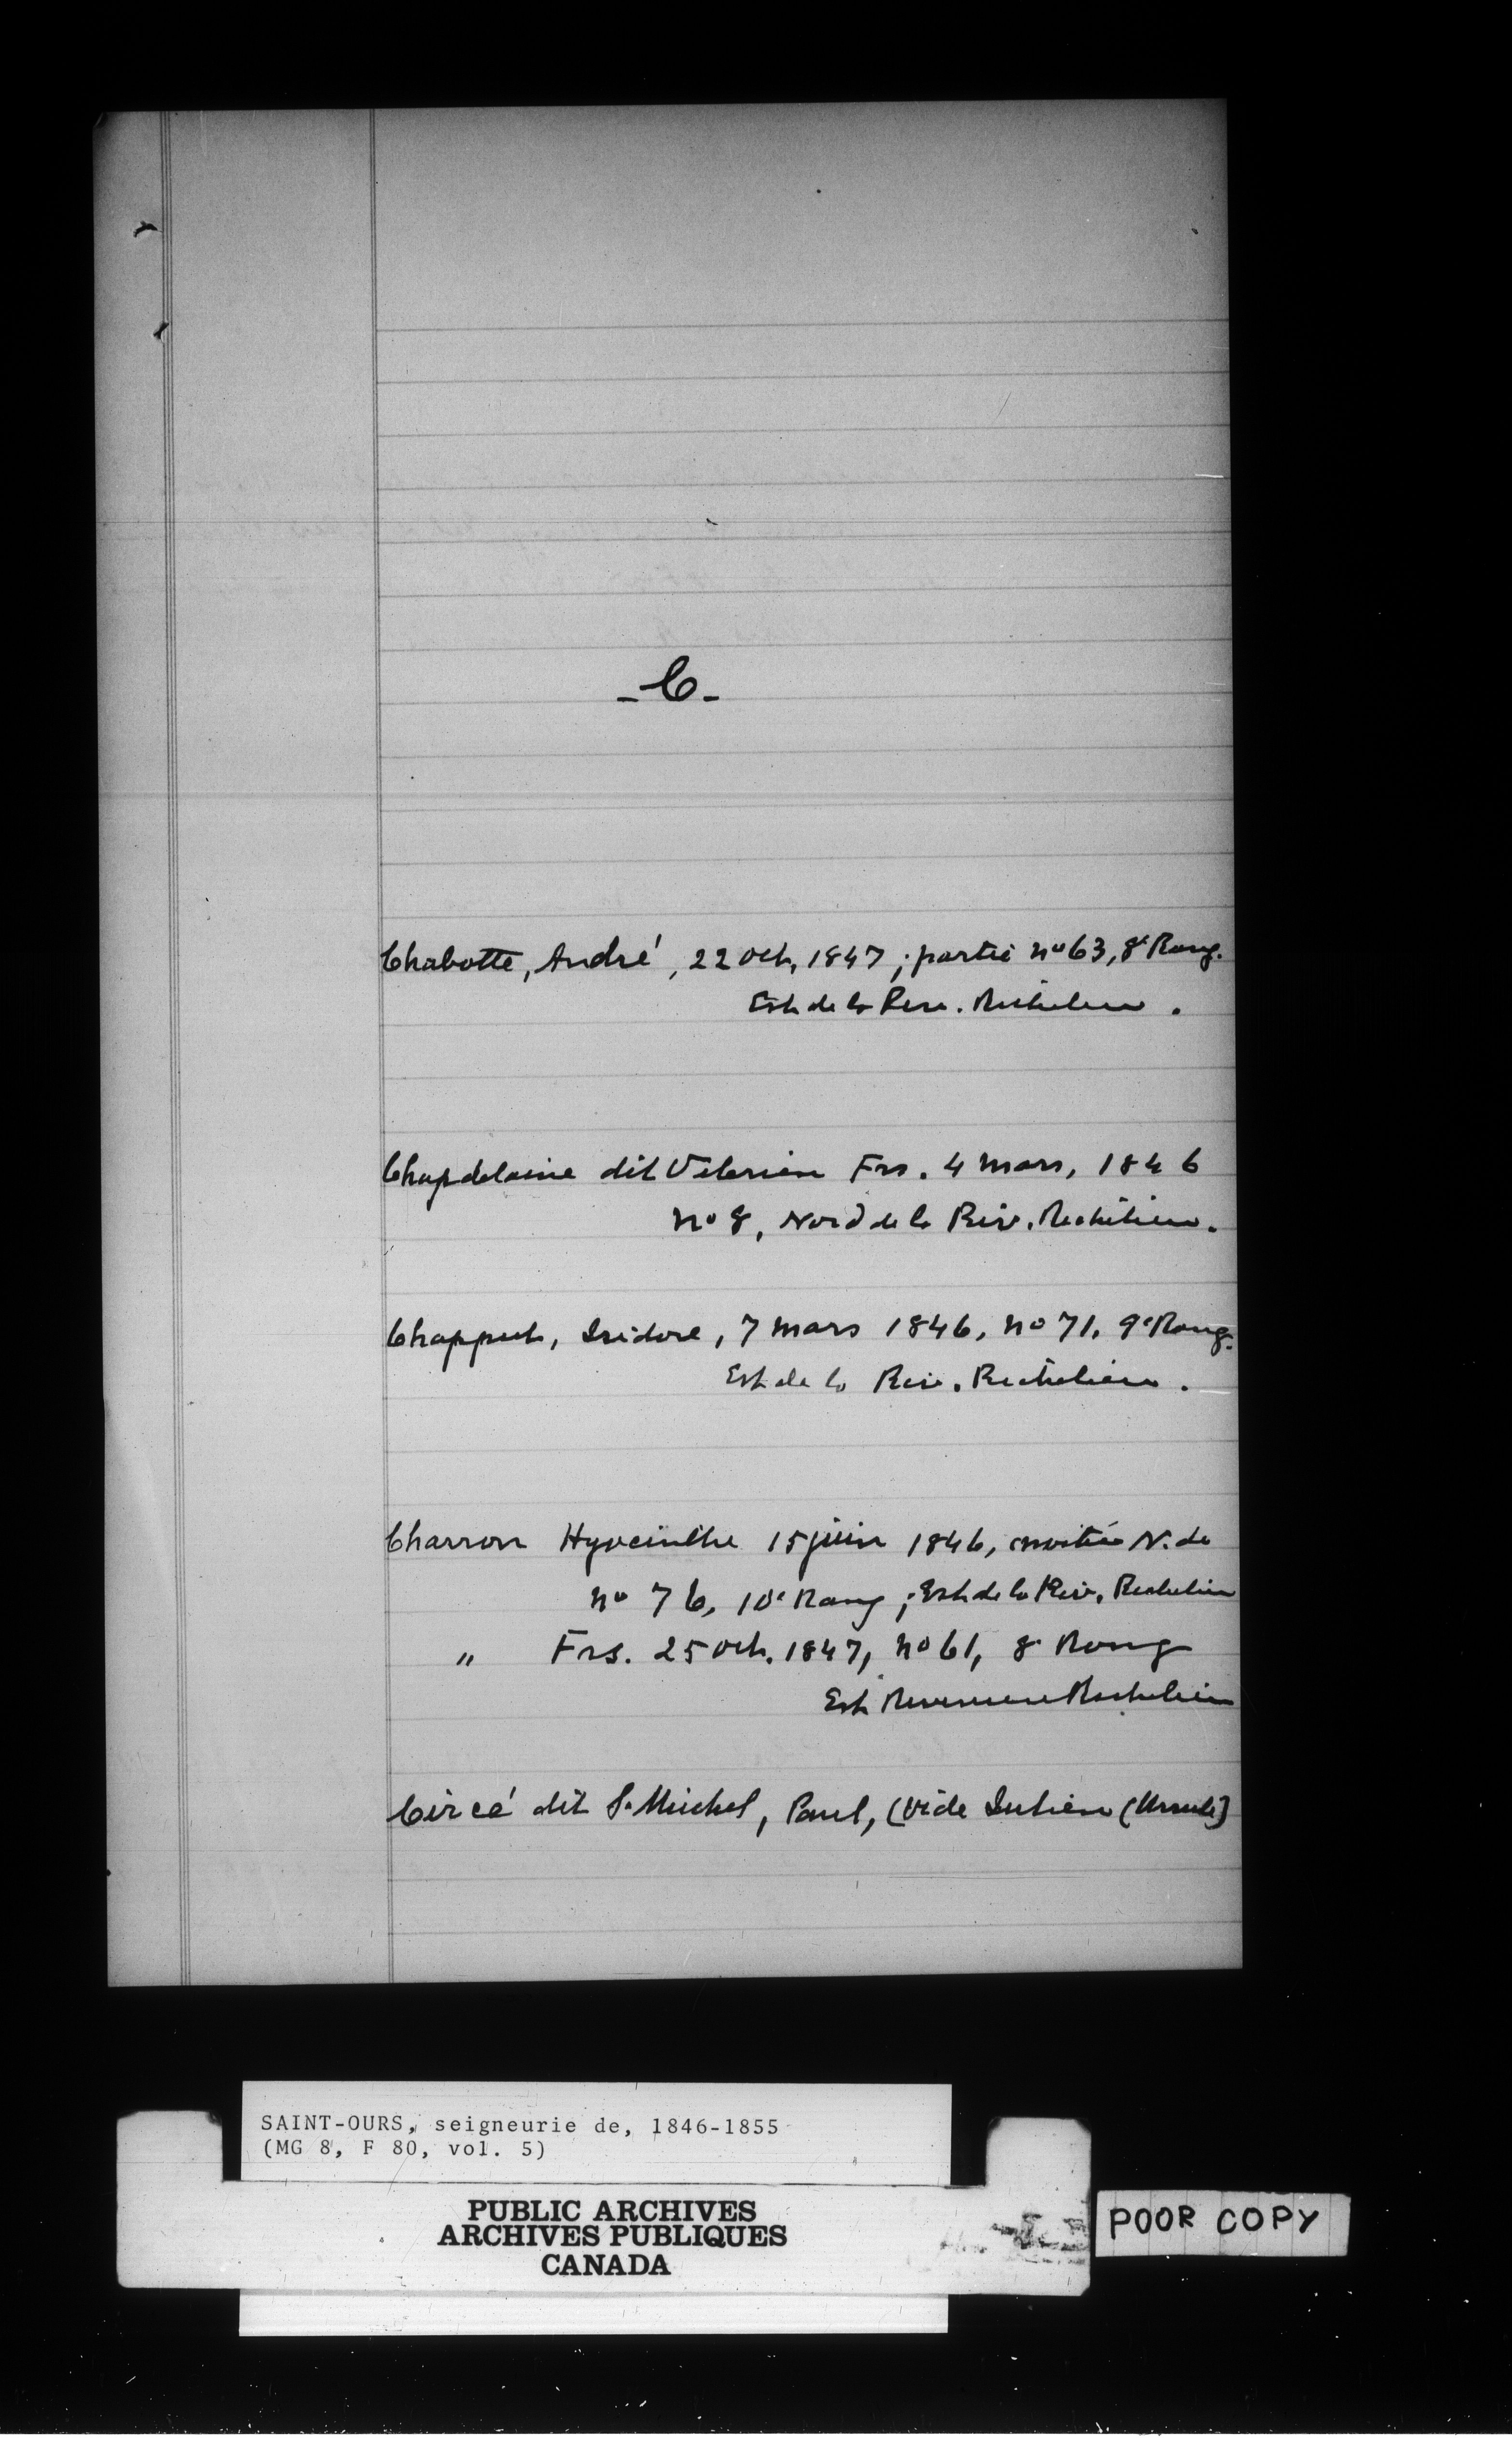 - C -
Chabotte, André, 22 Oct, 1847 ; partie no 63, 8e Rang.
Est de la Riv. Richelieu.
Chapdelaine dit Frs. 4 Mars, 1846
no 8, Nord de la Riv. Richelieu.
Chapput, Isidore, 7 mars 1846, no 71, 9e Rang.
Est de la Riv. Richelieu.
Charron Hyacinthe 15 juin 1846, moitié N. de
no 76, 10e Rang ; Est de la Riv. Richelieu
" Frs. 25 Oct. 1847, no 61, 8e Rang
Est Richelieu
Circé dit St Michel, Paul, (Vide Julien (Ursule)
SAINT-OURS, seigneurie de, 1846-1855
(MG 8, F 80, vol. 5)
PUBLIC ARCHIVES
ARCHIVES PUBLIQUES
CANADA
POOR COPY